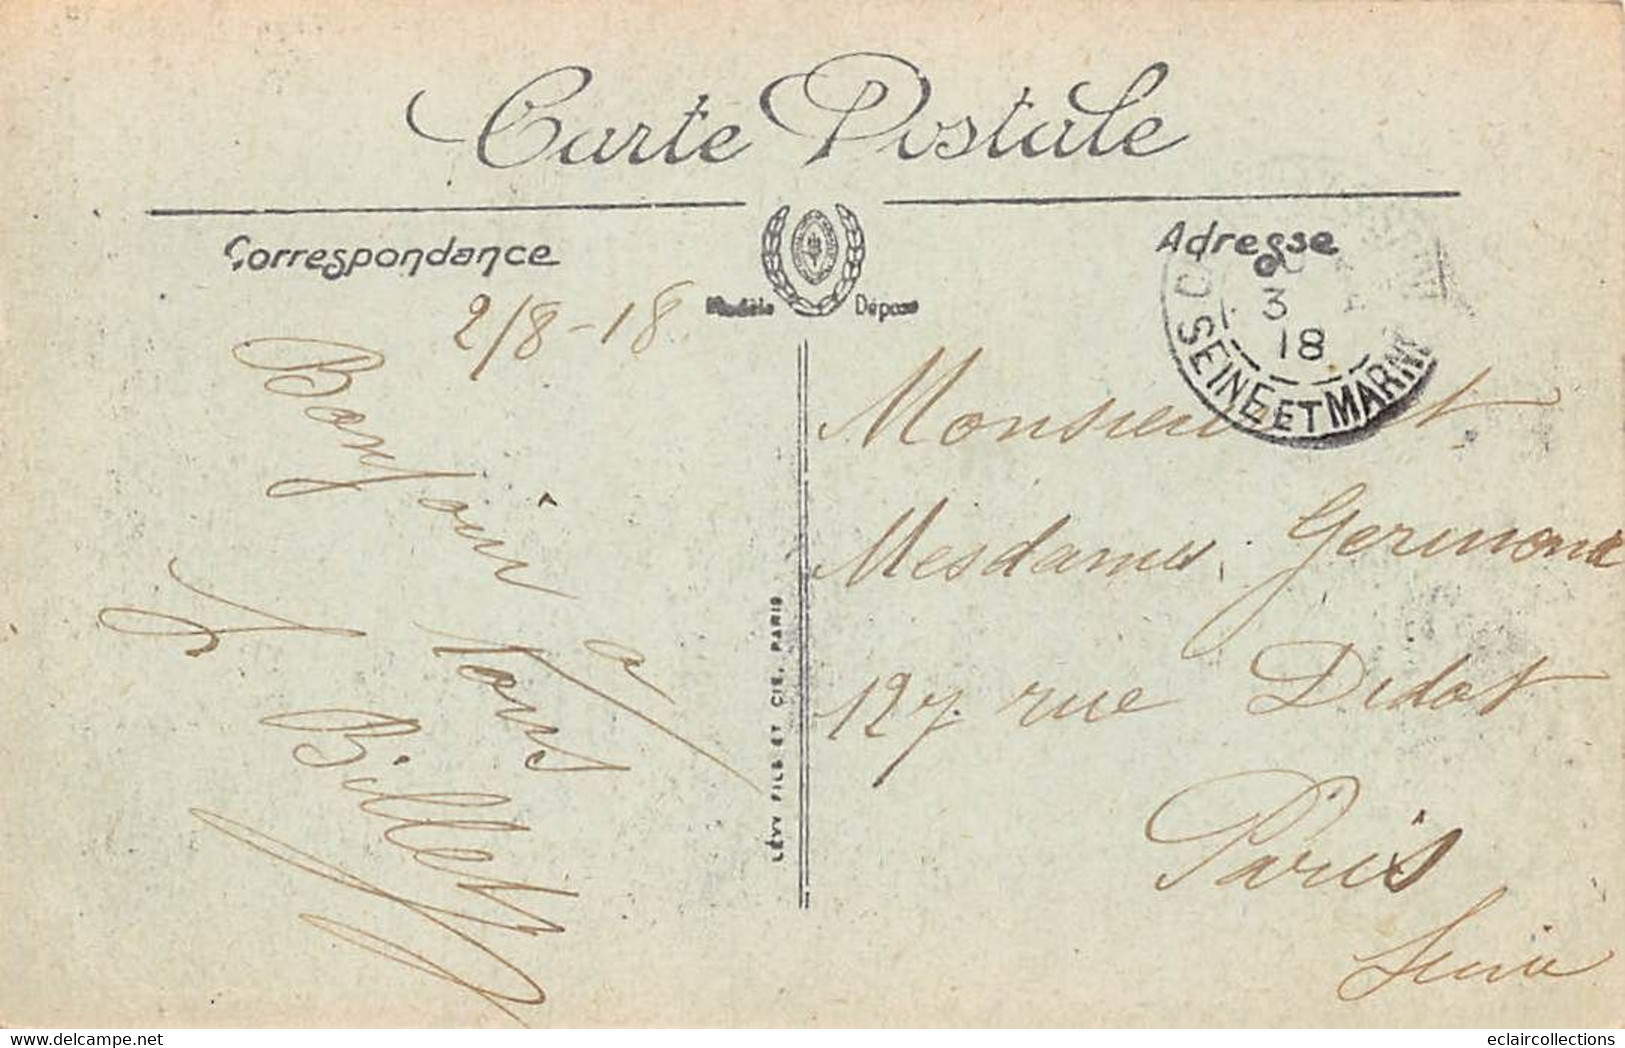 Carte Postale
Correspondance
Adresse
Modèle Déposé
2/8-18
Bonjour
à
tous
J. Billet
LÉVY FILS ET CIE, PARIS
3
18
SEINE ET MARNE
Monsieur et
Mesdames Germone
127 rue Didot
Paris
Seine
eclaircollections